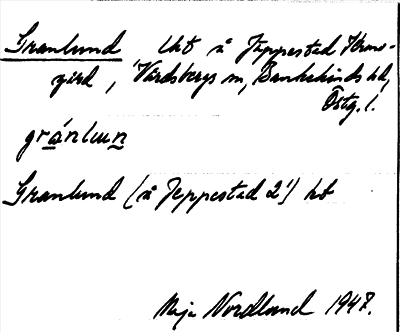 Granlund lht å Jeppestad Herre-
gård, Vårdsbergs sn, Bankekinds hd,
Östg. l.
gránlun
Granlund (å Jeppestad 2¹) ht
Maja Nordlund 1947.